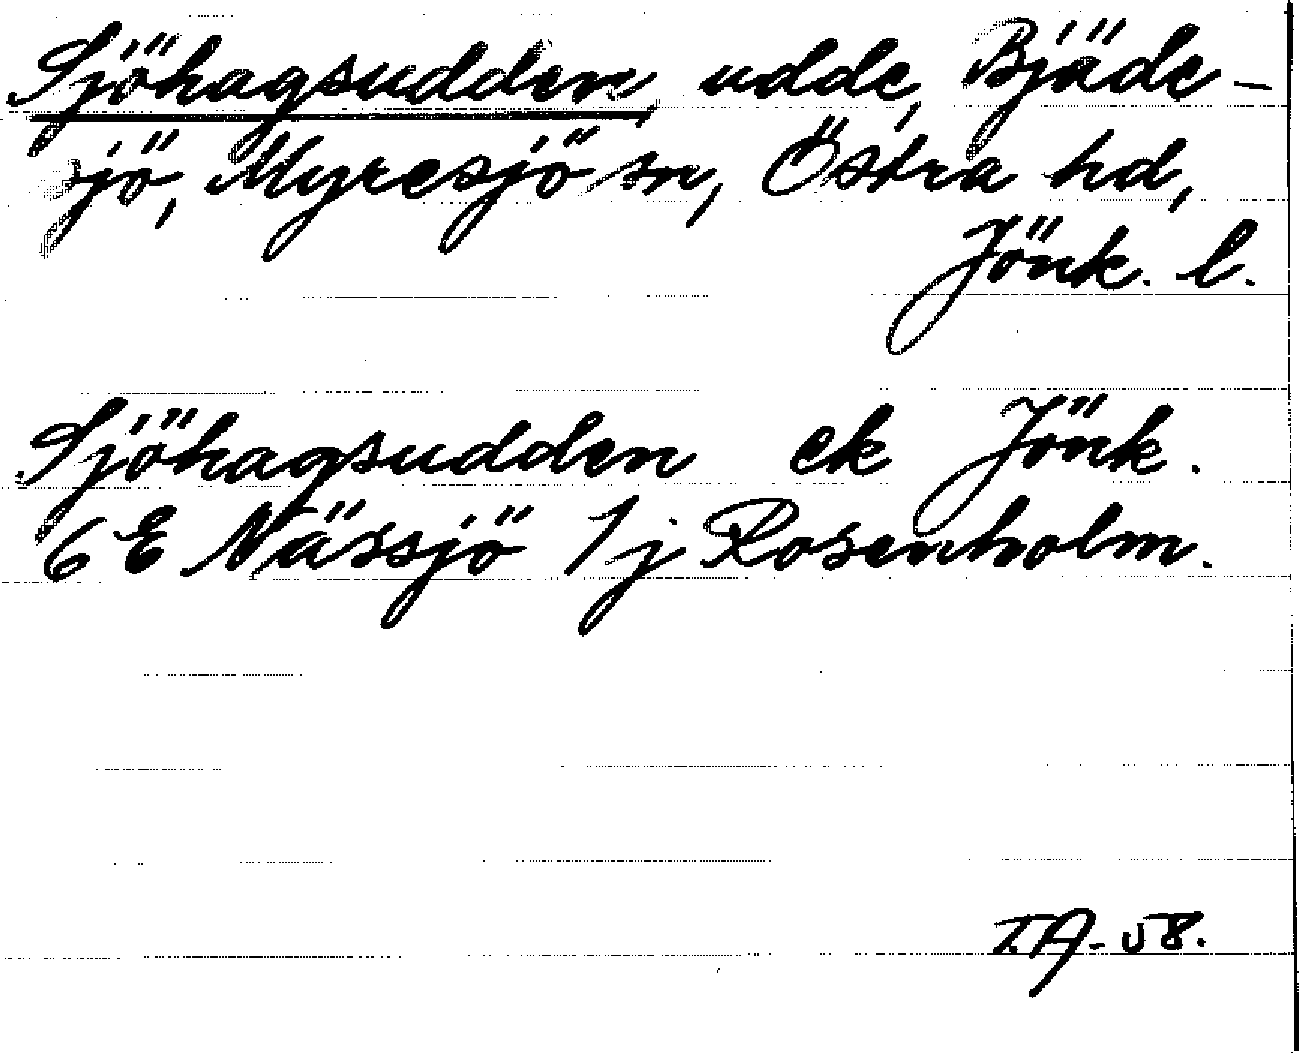 Sjöhagsudden, udde, Bjäde-
sjö, Myresjö sn, Östra hd,
Jönk. l.
Sjöhagsudden ek Jönk.
6 E Nässjö 1j Rosenholm.
T.A-58.